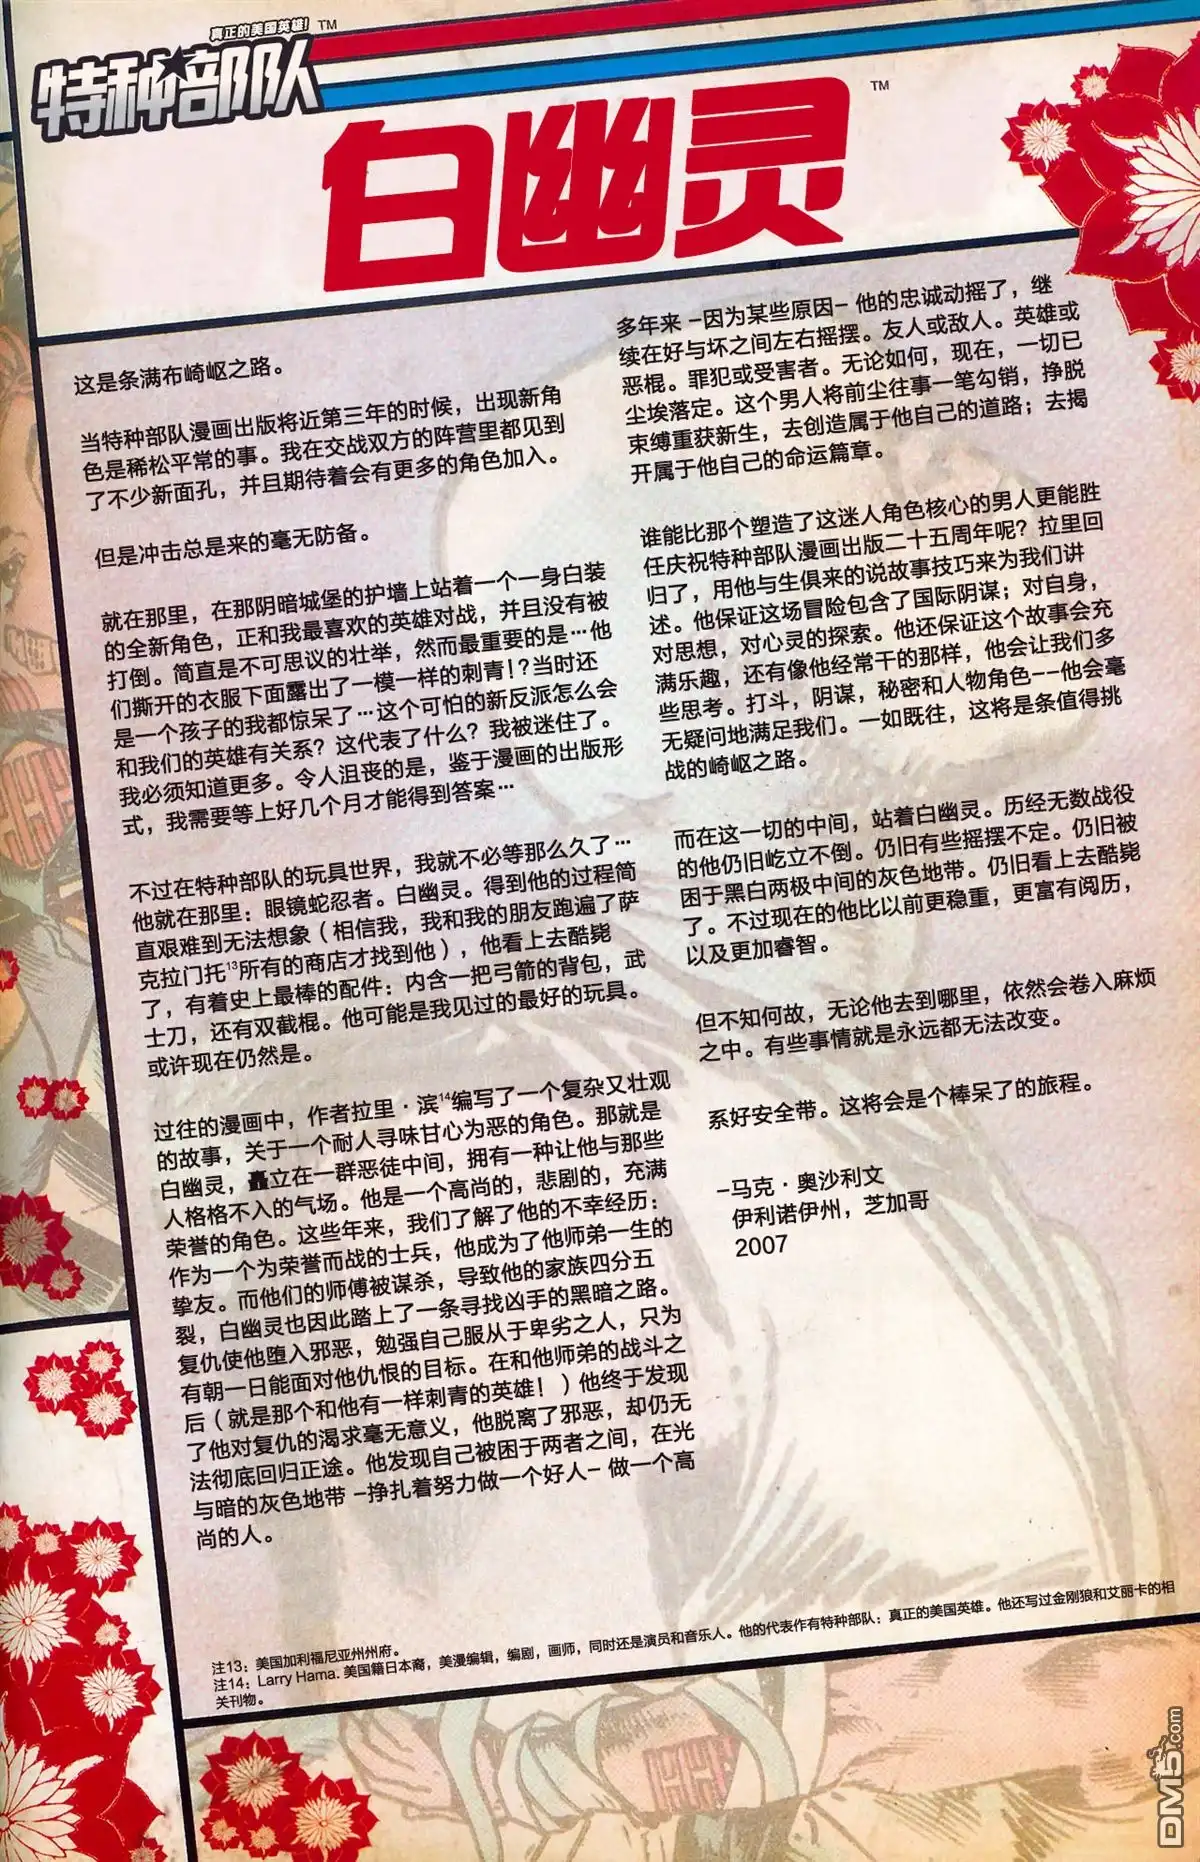 真正的美国英雄! TM
特种部队
白幽灵 TM
这是条满布崎岖之路。
当特种部队漫画出版将近第三年的时候，出现新角
色是稀松平常的事。我在交战双方的阵营里都见到
了不少新面孔，并且期待着会有更多的角色加入。
但是冲击总是来的毫无防备。
就在那里，在那阴暗城堡的护墙上站着一个一身白装
的全新角色，正和我最喜欢的英雄对战，并且没有被
打倒。简直是不可思议的壮举，然而最重要的是…他
们撕开的衣服下面露出了一模一样的刺青!?当时还
是一个孩子的我都惊呆了…这个可怕的新反派怎么会
和我们的英雄有关系？这代表了什么？我被迷住了。
我必须知道更多。令人沮丧的是，鉴于漫画的出版形
式，我需要等上好几个月才能得到答案…
不过在特种部队的玩具世界，我就不必等那么久了…
他就在那里：眼镜蛇忍者。白幽灵。得到他的过程简
直艰难到无法想象（相信我，我和我的朋友跑遍了萨
克拉门托13所有的商店才找到他），他看上去酷毙
了，有着史上最棒的配件：内含一把弓箭的背包，武
士刀，还有双截棍。他可能是我见过的最好的玩具。
或许现在仍然是。
过往的漫画中，作者拉里·滨14编写了一个复杂又壮观
的故事，关于一个耐人寻味甘心为恶的角色。那就是
白幽灵，矗立在一群恶徒中间，拥有一种让他与那些
人格格不入的气场。他是一个高尚的，悲剧的，充满
荣誉的角色。这些年来，我们了解了他的不幸经历：
作为一个为荣誉而战的士兵，他成为了他师弟一生的
挚友。而他们的师傅被谋杀，导致他的家族四分五
裂，白幽灵也因此踏上了一条寻找凶手的黑暗之路。
复仇使他堕入邪恶，勉强自己服从于卑劣之人，只为
有朝一日能面对他仇恨的目标。在和他师弟的战斗之
后（就是那个和他有一样刺青的英雄！）他终于发现
了他对复仇的渴求毫无意义，他脱离了邪恶，却仍无
法彻底回归正途。他发现自己被困于两者之间，在光
与暗的灰色地带 -挣扎着努力做一个好人- 做一个高
尚的人。
多年来 -因为某些原因- 他的忠诚动摇了，继
续在好与坏之间左右摇摆。友人或敌人。英雄或
恶棍。罪犯或受害者。无论如何，现在，一切已
尘埃落定。这个男人将前尘往事一笔勾销，挣脱
束缚重获新生，去创造属于他自己的道路；去揭
开属于他自己的命运篇章。
谁能比那个塑造了这迷人角色核心的男人更能胜
任庆祝特种部队漫画出版二十五周年呢？拉里回
归了，用他与生俱来的说故事技巧来为我们讲
述。他保证这场冒险包含了国际阴谋；对自身，
对思想，对心灵的探索。他还保证这个故事会充
满乐趣，还有像他经常干的那样，他会让我们多
些思考。打斗，阴谋，秘密和人物角色--他会毫
无疑问地满足我们。一如既往，这将是条值得挑
战的崎岖之路。
而在这一切的中间，站着白幽灵。历经无数战役
的他仍旧屹立不倒。仍旧有些摇摆不定。仍旧被
困于黑白两极中间的灰色地带。仍旧看上去酷毙
了。不过现在的他比以前更稳重，更富有阅历，
以及更加睿智。
但不知何故，无论他去到哪里，依然会卷入麻烦
之中。有些事情就是永远都无法改变。
系好安全带。这将会是个棒呆了的旅程。
-马克·奥沙利文
伊利诺伊州，芝加哥
2007
注13：美国加利福尼亚州州府。
注14：Larry Hama. 美国籍日本裔，美漫编辑，编剧，画师，同时还是演员和音乐人。他的代表作有特种部队：真正的美国英雄。他还写过金刚狼和艾丽卡的相
关刊物。
DM5.com